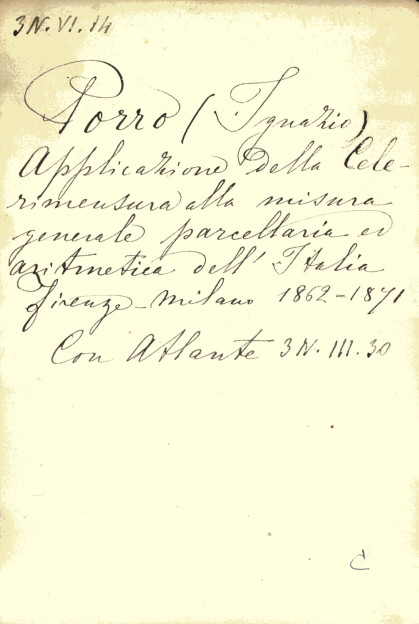 3 N. VI. 14
Porro (Ignazio)
Applicazione della Cele-
rimensura alla misura
generale parcellaria ed
aritmetica dell' Italia
Firenze - Milano 1862-1871
Con Atlante 3 N. III. 30
C